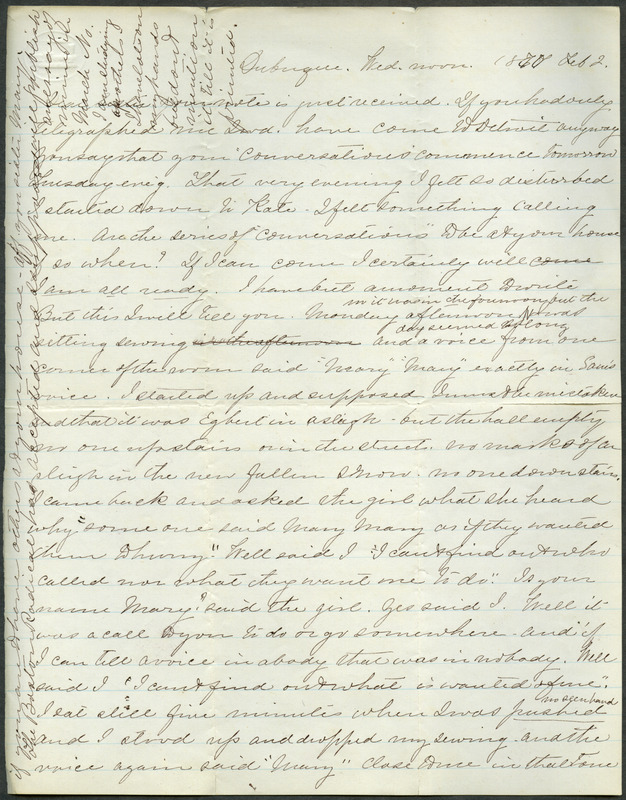 Dubuque. Wed. noon. 1870 Feb 2.
note is just received. If you had only
telegraphed me I wd. have come to Detroit anyway
You say that your "conversations" commence tomorrow
Thursday eve'g. That very evening I felt so disturbed
I started down to Kate. I felt something calling
me. Are the series of "conversations" to be at your house
& so when? If I can come I certainly will come
am all ready. I have but a moment to write
But this I will tell you. Monday afternoon
no it was in the forenoon but the day seemed so long
I was
sitting sewing in the afternoon and a voice from one
corner of the room said "Mary" "Mary" exactly in
voice. I started up and supposed I must be mistaken
and that it was Egbert in a sleigh - but the hall empty
no one upstairs or in the street. no marks of a
sleigh in the new fallen snow. no one down stairs.
I came back and asked the girl what she heard
why "some one said Mary Mary as if they wanted
them to hurry." Well said I "I can't find out who
called nor what they want me to do". "Is your
name Mary" said the girl. Yes said I. Well it
was a call to you to do or go somewhere - and if
I can tell a voice in a body that was in nobody. Well
said I "I can't find out what is wanted of me".
I sat still five minutes when I was pushed
no seen hand
and I stood up and dropped my sewing - and the
voice again said "Mary" close to me in that tone
if you and others at your house
The Boston Radical has accepted and will publish
an essay of mine in
March No.
I am studying
another